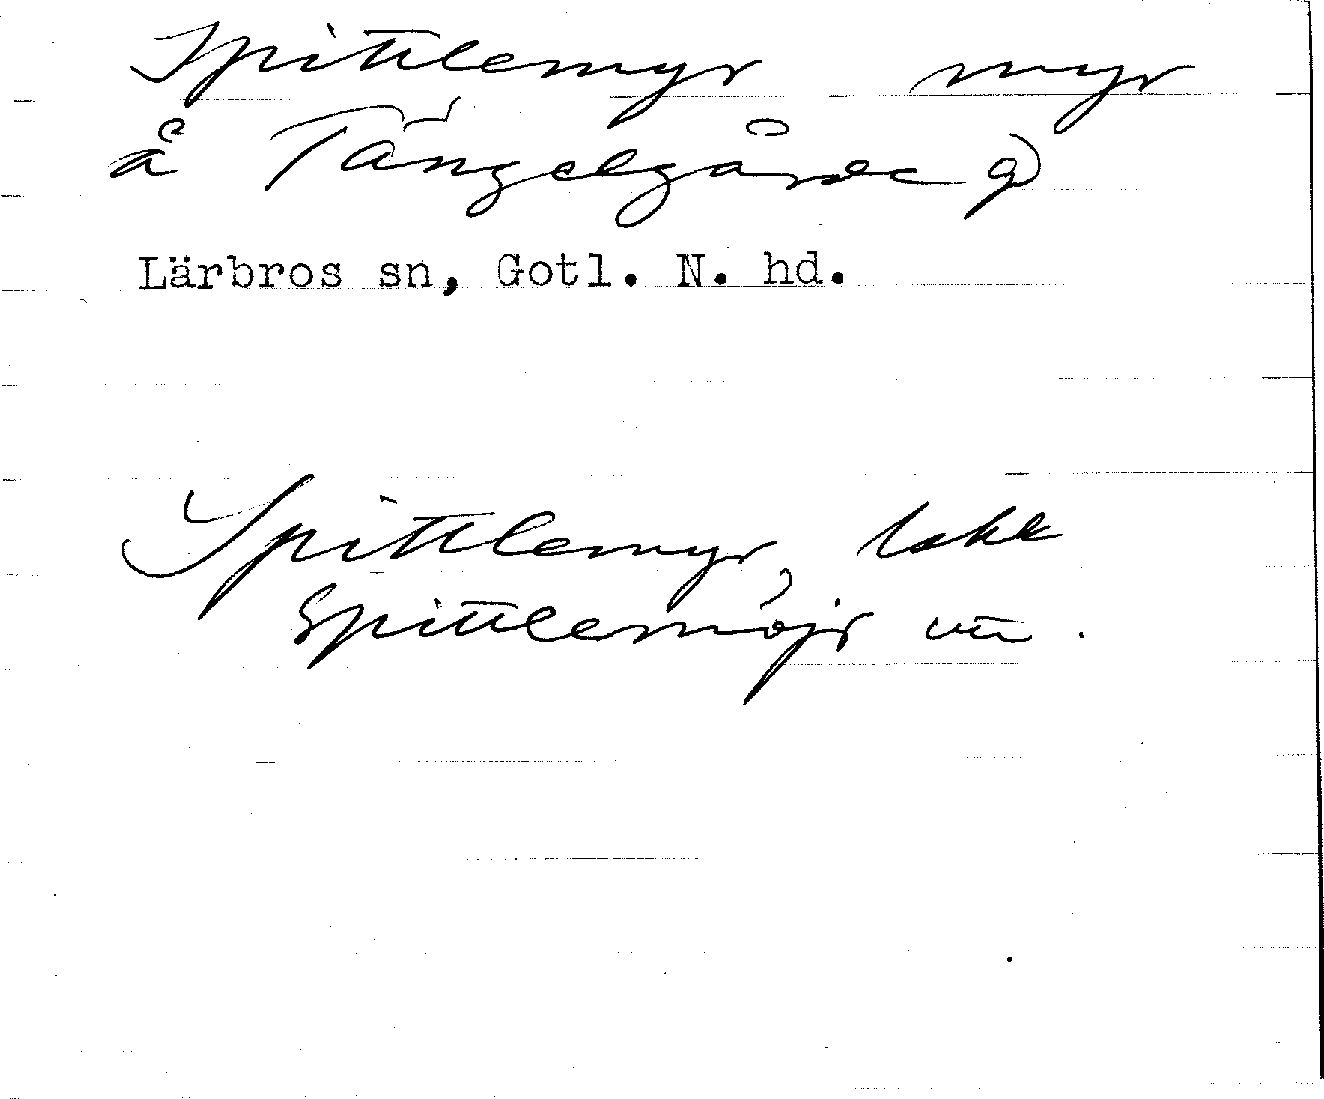 Spittlemyr myr
å Tängelgårde g)
Lärbros sn, Gotl. N. hd.
Spittlemyr,
Spittlemöjr